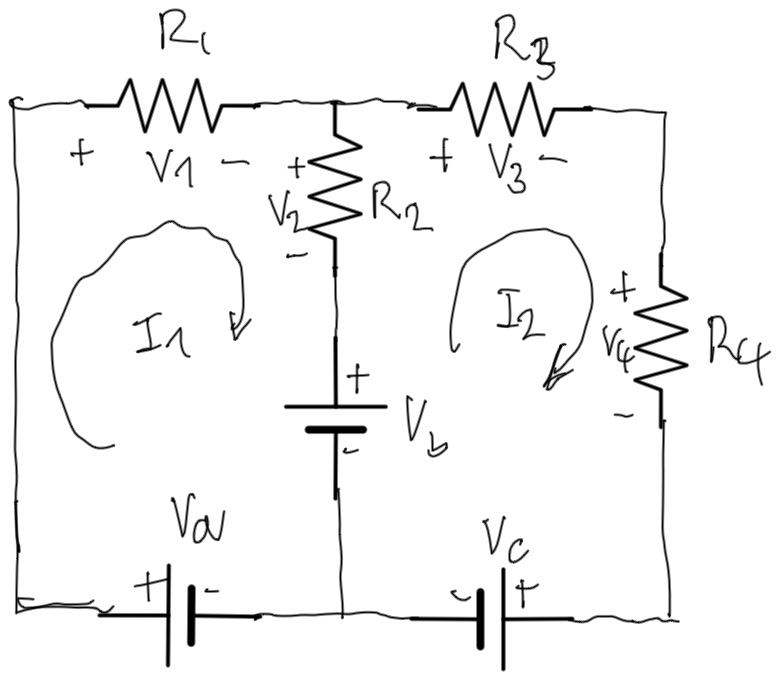 R1
R3
+ V1 -
+
V2
-
R2
+ V3 -
I1
I2
+
V4
-
R4
+
Vb
-
Va
+ -
Vc
- +